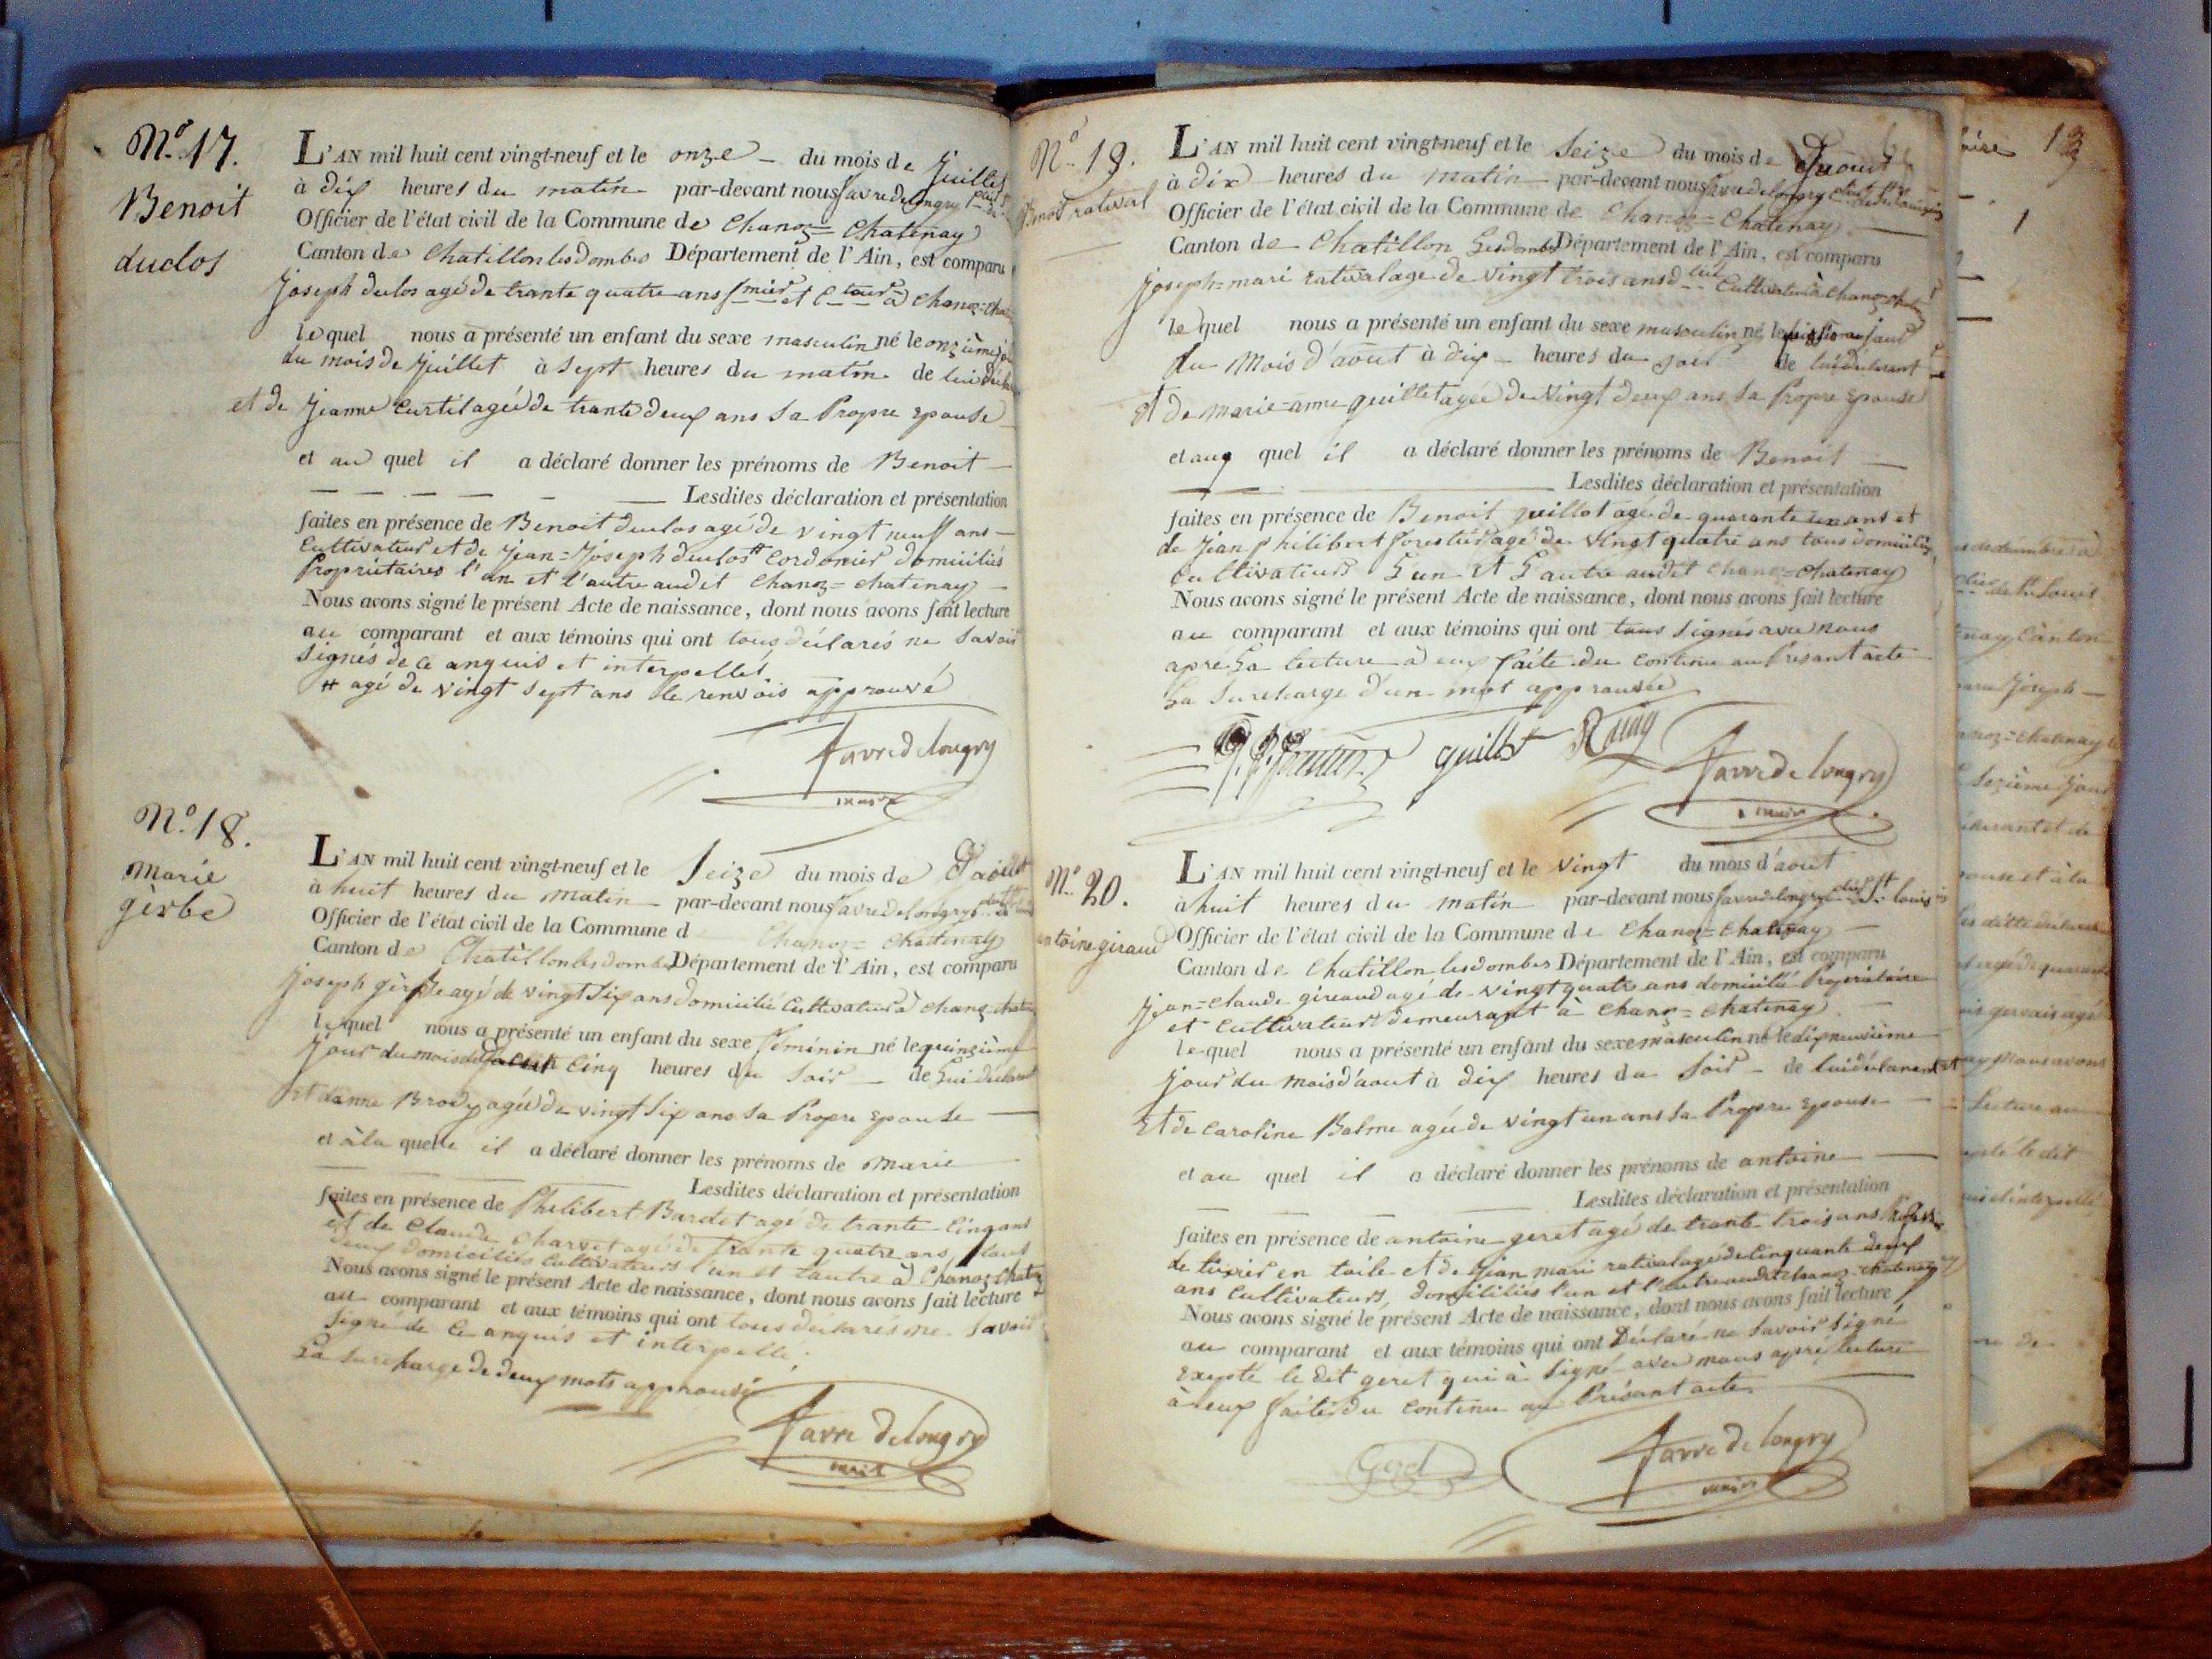 N.o 17.
Benoit
duclos
L'AN mil huit cent vingt-neuf et le onze du mois de Juillet
à dix heures du matin par-devant nous favre de longry
Officier de l'état civil de la Commune de Chanoz = Chatenay
Canton de Chatillon les dombes Département de l'Ain, est comparu
Joseph duclos agé de trante quatre ans et à Chanoz=
lequel nous a présenté un enfant du sexe masculin né le onzième
du mois de Juillet à Sept heures du matin de lui
et de Jeanne Curtil agée de trante deux ans Sa Propre Epouse
et au quel il a déclaré donner les prénoms de Benoit
Lesdites déclaration et présentation
faites en présence de Benoit duclos agé de vingt neuf ans
Cultivateur et de Jean=Joseph duclos # Cordonier domiciliés
Propriétaires l'un et l'autre audit Chanoz=chatenay
Nous avons signé le présent Acte de naissance, dont nous avons fait lecture
au comparant et aux témoins qui ont tous déclarés ne Savoir
Signés de ce anquis et interpellet
# agé de vingt Sept ans le renvois approuvé
favre d longry
maire
N.o 18.
Marie
gerbe
L'AN mil huit cent vingt-neuf et le Seize du mois de
à huit heures du matin par-devant nous favre de longry
Officier de l'état civil de la Commune d Chanoz = Chatenay
Canton de Chatillon les dombes Département de l'Ain, est comparu
Joseph gerbe agé de vingt Six ans domicilié Cultivateur à Chanoz
lequel nous a présenté un enfant du sexe féminin né le quinzième
Jour du mois Cinq heures du Soir de Lui déclarant
Et danne Brody agée de vingt Six ans Sa Propre Epouse
et à la quelle il a déclaré donner les prénoms de Marie
Lesdites déclaration et présentation
faites en présence de Philibert Bardet agé de trante Cinq ans
et de Claude Charvet agé de trante quatre ans tous
deux domiciliés Cultivateurs l'un et l'autre à Chanoz
Nous avons signé le présent Acte de naissance, dont nous avons fait lecture
au comparant et aux témoins qui ont tous déclarés ne Savoir
Signé de ce anquis et interpelle;
La Surcharge de deux mots approuvée
favre De longry
maire
N.o 19.
Benoit rativat
L'AN mil huit cent vingt-neuf et le Seize du mois de
à dix heures du matin par-devant nous favre de longry
Officier de l'état civil de la Commune de Chanoz = Chatenay
Canton de Chatillon Les dombes Département de l'Ain, est comparu
Joseph=mari rativat agé de vingt trois ans Cultivateur à Chanoz
lequel nous a présenté un enfant du sexe masculin né le jour
du Mois d'aout à dix heures du soir de lui déclarant
Et de marie=anne guillet agée de Vingt deux ans Sa Propre Epouse
et auq quel il a déclaré donner les prénoms de Benoit
Lesdites déclaration et présentation
faites en présence de Benoit guillot agé de quarante ans et
de Jean Philibert forestier agé de Vingt quatre ans tous domiciliés
Cultivateurs L'un Et L'autre audit Chanoz=Chatenay
Nous avons signé le présent Acte de naissance, dont nous avons fait lecture
au comparant et aux témoins qui ont tous Signés avec nous
apré La lecture à eux faite du Contenu au Présant acte
La Surcharge d'un mot approuvée
guillot
favre de longry
maire
N.o 20.
antoine giraud
L'AN mil huit cent vingt-neuf et le vingt du mois d'aout
à huit heures du matin par-devant nous favre de longry louis
Officier de l'état civil de la Commune de Chanoz=Chatenay
Canton de Chatillon les dombes Département de l'Ain, est comparu
Jean=Claude gireaud agé de vingt quatre ans domicilié Propriétaire
et Cultivateur demeurant à Chanoz=Chatenay
lequel nous a présenté un enfant du sexe masculin né le dix neuvième
Jour du mois d'aout à dix heures du Soir de lui déclarant
Et de Caroline Balme agée de vingt un ans Sa Propre Epouse
et au quel il a déclaré donner les prénoms de antoine
Lesdites déclaration et présentation
faites en présence de antoine geret agé de trante trois ans
de tixier en toile et de Jean mari rativat agé de Cinquante deux
ans Cultivateurs, domiciliés l'un et l'autre audit Chanoz=Chatenay
Nous avons signé le présent Acte de naissance, dont nous avons fait lecture
au comparant et aux témoins qui ont Déclaré ne Savoir Signé
Exepté le dit geret qui à Signé avec nous apré lecture
à eux faite du Contenu au Présant acte
Geret
favre de longry
maire